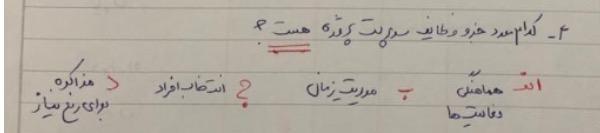 ۴- کدام مورد جزو وظایف سرپرست پروژه هست ؟
الف هماهنگی فعالیت ها
ب مدیریت زمان
ج انتخاب افراد
د مذاکره برای رفع نیاز